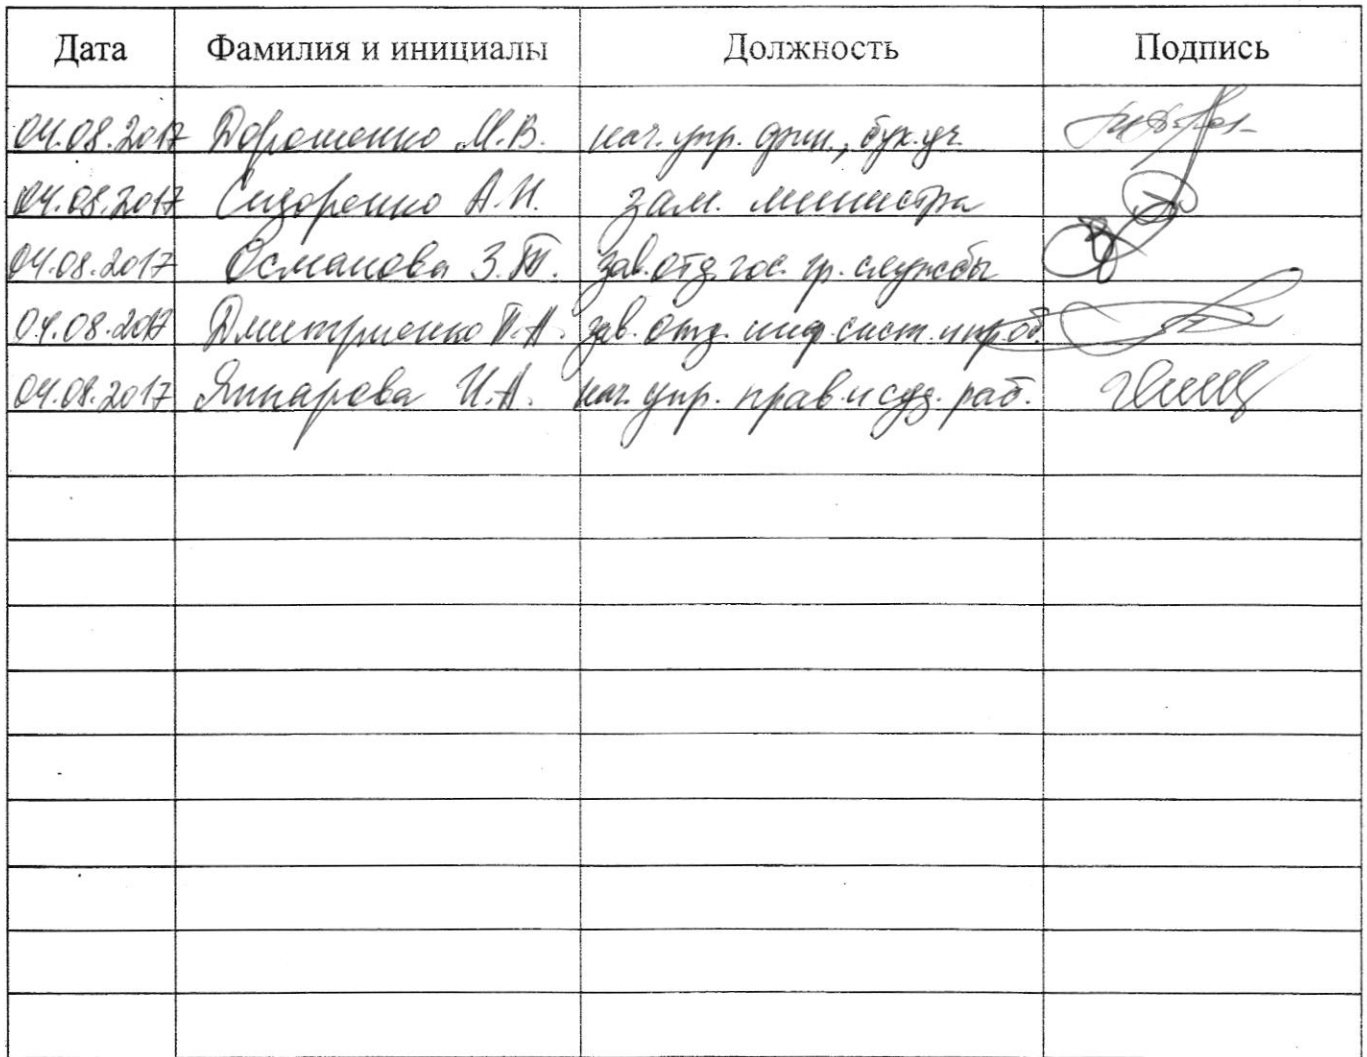 Дата Фамилия и инициалы Должность Подпись
04.08.2017 Дорошенко М.В. нач. упр. фин., бух. уч.
04.08.2017 Сидоренко А.Н. зам. министра
04.08.2017 Османова З.Т. зав. отд. гос. гр. службы
04.08.2017 Дмитриенко П.А. зав. отд. инф. сист.
04.08.2017 Яппарова И.А. нач. упр. прав. и суд. раб.